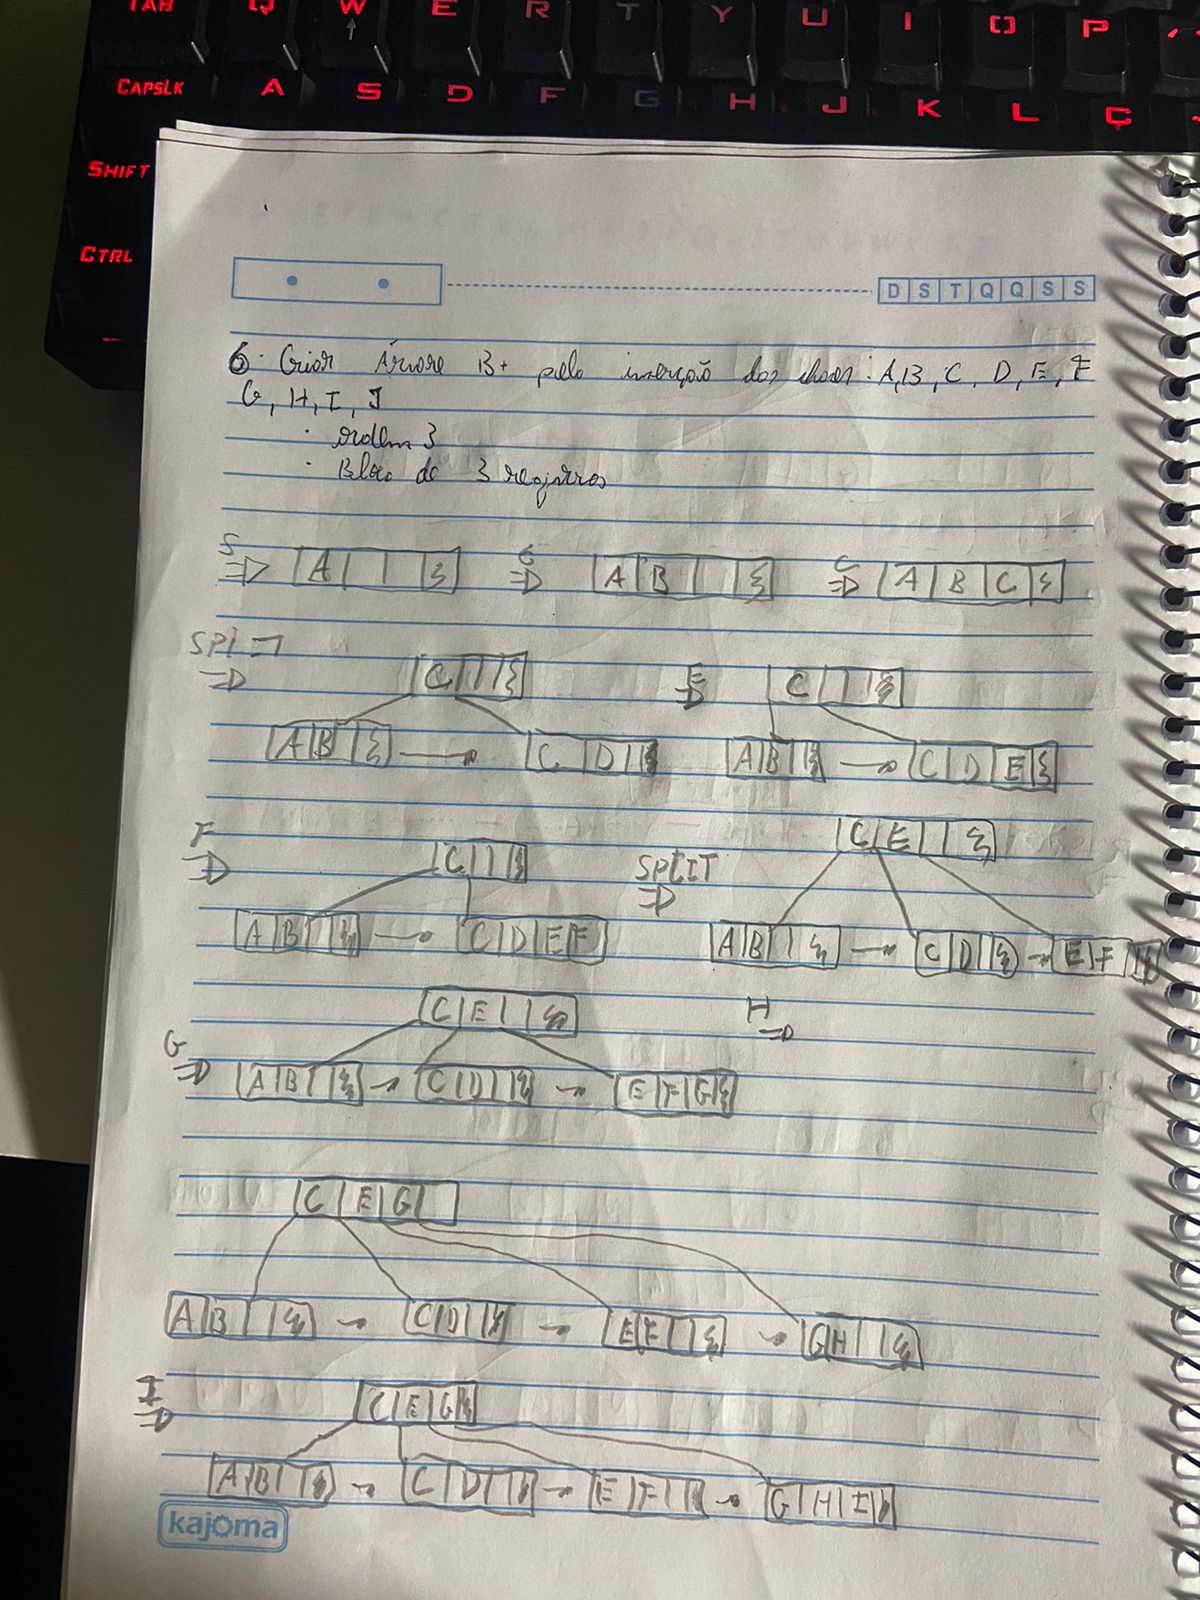 TAB Q W E R T Y U I O P
CAPSLK A S D F G H J K L Ç
SHIFT
CTRL
D S T Q Q S S
6. Criar Árvore B+ pela inserção das chaves: A, B, C, D, E, F
G, H, I, J
· ordem 3
· Bloco de 3 registros
A A B A B C
SPLIT C E C
A B C D A B C D E
F C SPLIT C E
A B C D E F A B C D E F
C E H
G A B C D E F G
C E G
A B C D E F G H
I C E G
A B C D E F G H I
kajoma